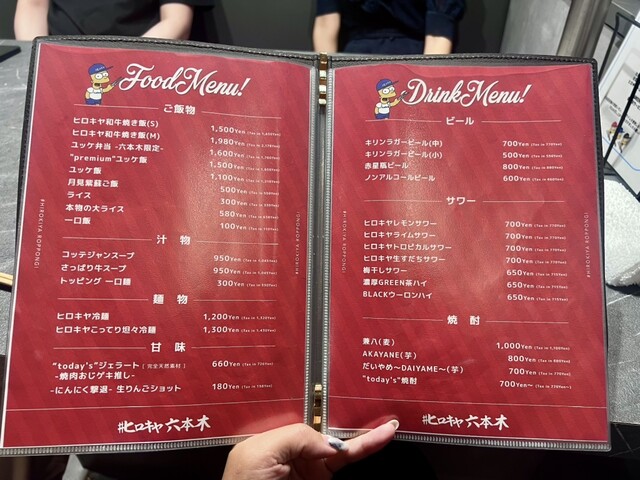 Food Menu!
ご飯物
ヒロキヤ和牛焼き飯(S) 1,500Yen
ヒロキヤ和牛焼き飯(M) 1,980Yen
ユッケ弁当 -六本木限定- 1,600Yen
"premium"ユッケ飯 1,500Yen
ユッケ飯 1,100Yen
月見紫蘇ご飯 500Yen
ライス 300Yen
本物の大ライス 580Yen
一口飯 100Yen
汁 物
コッテジャンスープ 950Yen
さっぱり牛スープ 950Yen
トッピング 一口麺 300Yen
麺 物
ヒロキヤ冷麺 1,200Yen (Tax in 1,320Yen)
ヒロキヤこってり坦々冷麺 1,300Yen (Tax in 1,430Yen)
甘 味
"today's"ジェラート [ 完全天然素材 ] 660Yen
-焼肉おじゲキ推し-
-にんにく撃退- 生りんごショット 180Yen
#ヒロキヤ 六本木
#HIROKIYA ROPPONGI
Drink Menu!
ビール
キリンラガービール(中) 700Yen (Tax in 770Yen)
キリンラガービール(小) 500Yen (Tax in 550Yen)
赤星瓶ビール 800Yen (Tax in 880Yen)
ノンアルコールビール 600Yen (Tax in 660Yen)
サワー
ヒロキヤレモンサワー 700Yen (Tax in 770Yen)
ヒロキヤライムサワー 700Yen (Tax in 770Yen)
ヒロキヤトロピカルサワー 700Yen (Tax in 770Yen)
ヒロキヤ生すだちサワー 700Yen (Tax in 770Yen)
梅干しサワー 650Yen (Tax in 715Yen)
濃厚GREEN茶ハイ 650Yen (Tax in 715Yen)
BLACKウーロンハイ 650Yen (Tax in 715Yen)
焼 酎
兼八(麦) 1,000Yen (Tax in 1,100Yen)
AKAYANE(芋) 800Yen (Tax in 880Yen)
だいやめ〜DAIYAME〜(芋) 700Yen (Tax in 770Yen)
"today's"焼酎 700Yen〜 (Tax in 770Yen〜)
#ヒロキヤ 六本木
#HIROKIYA ROPPONGI